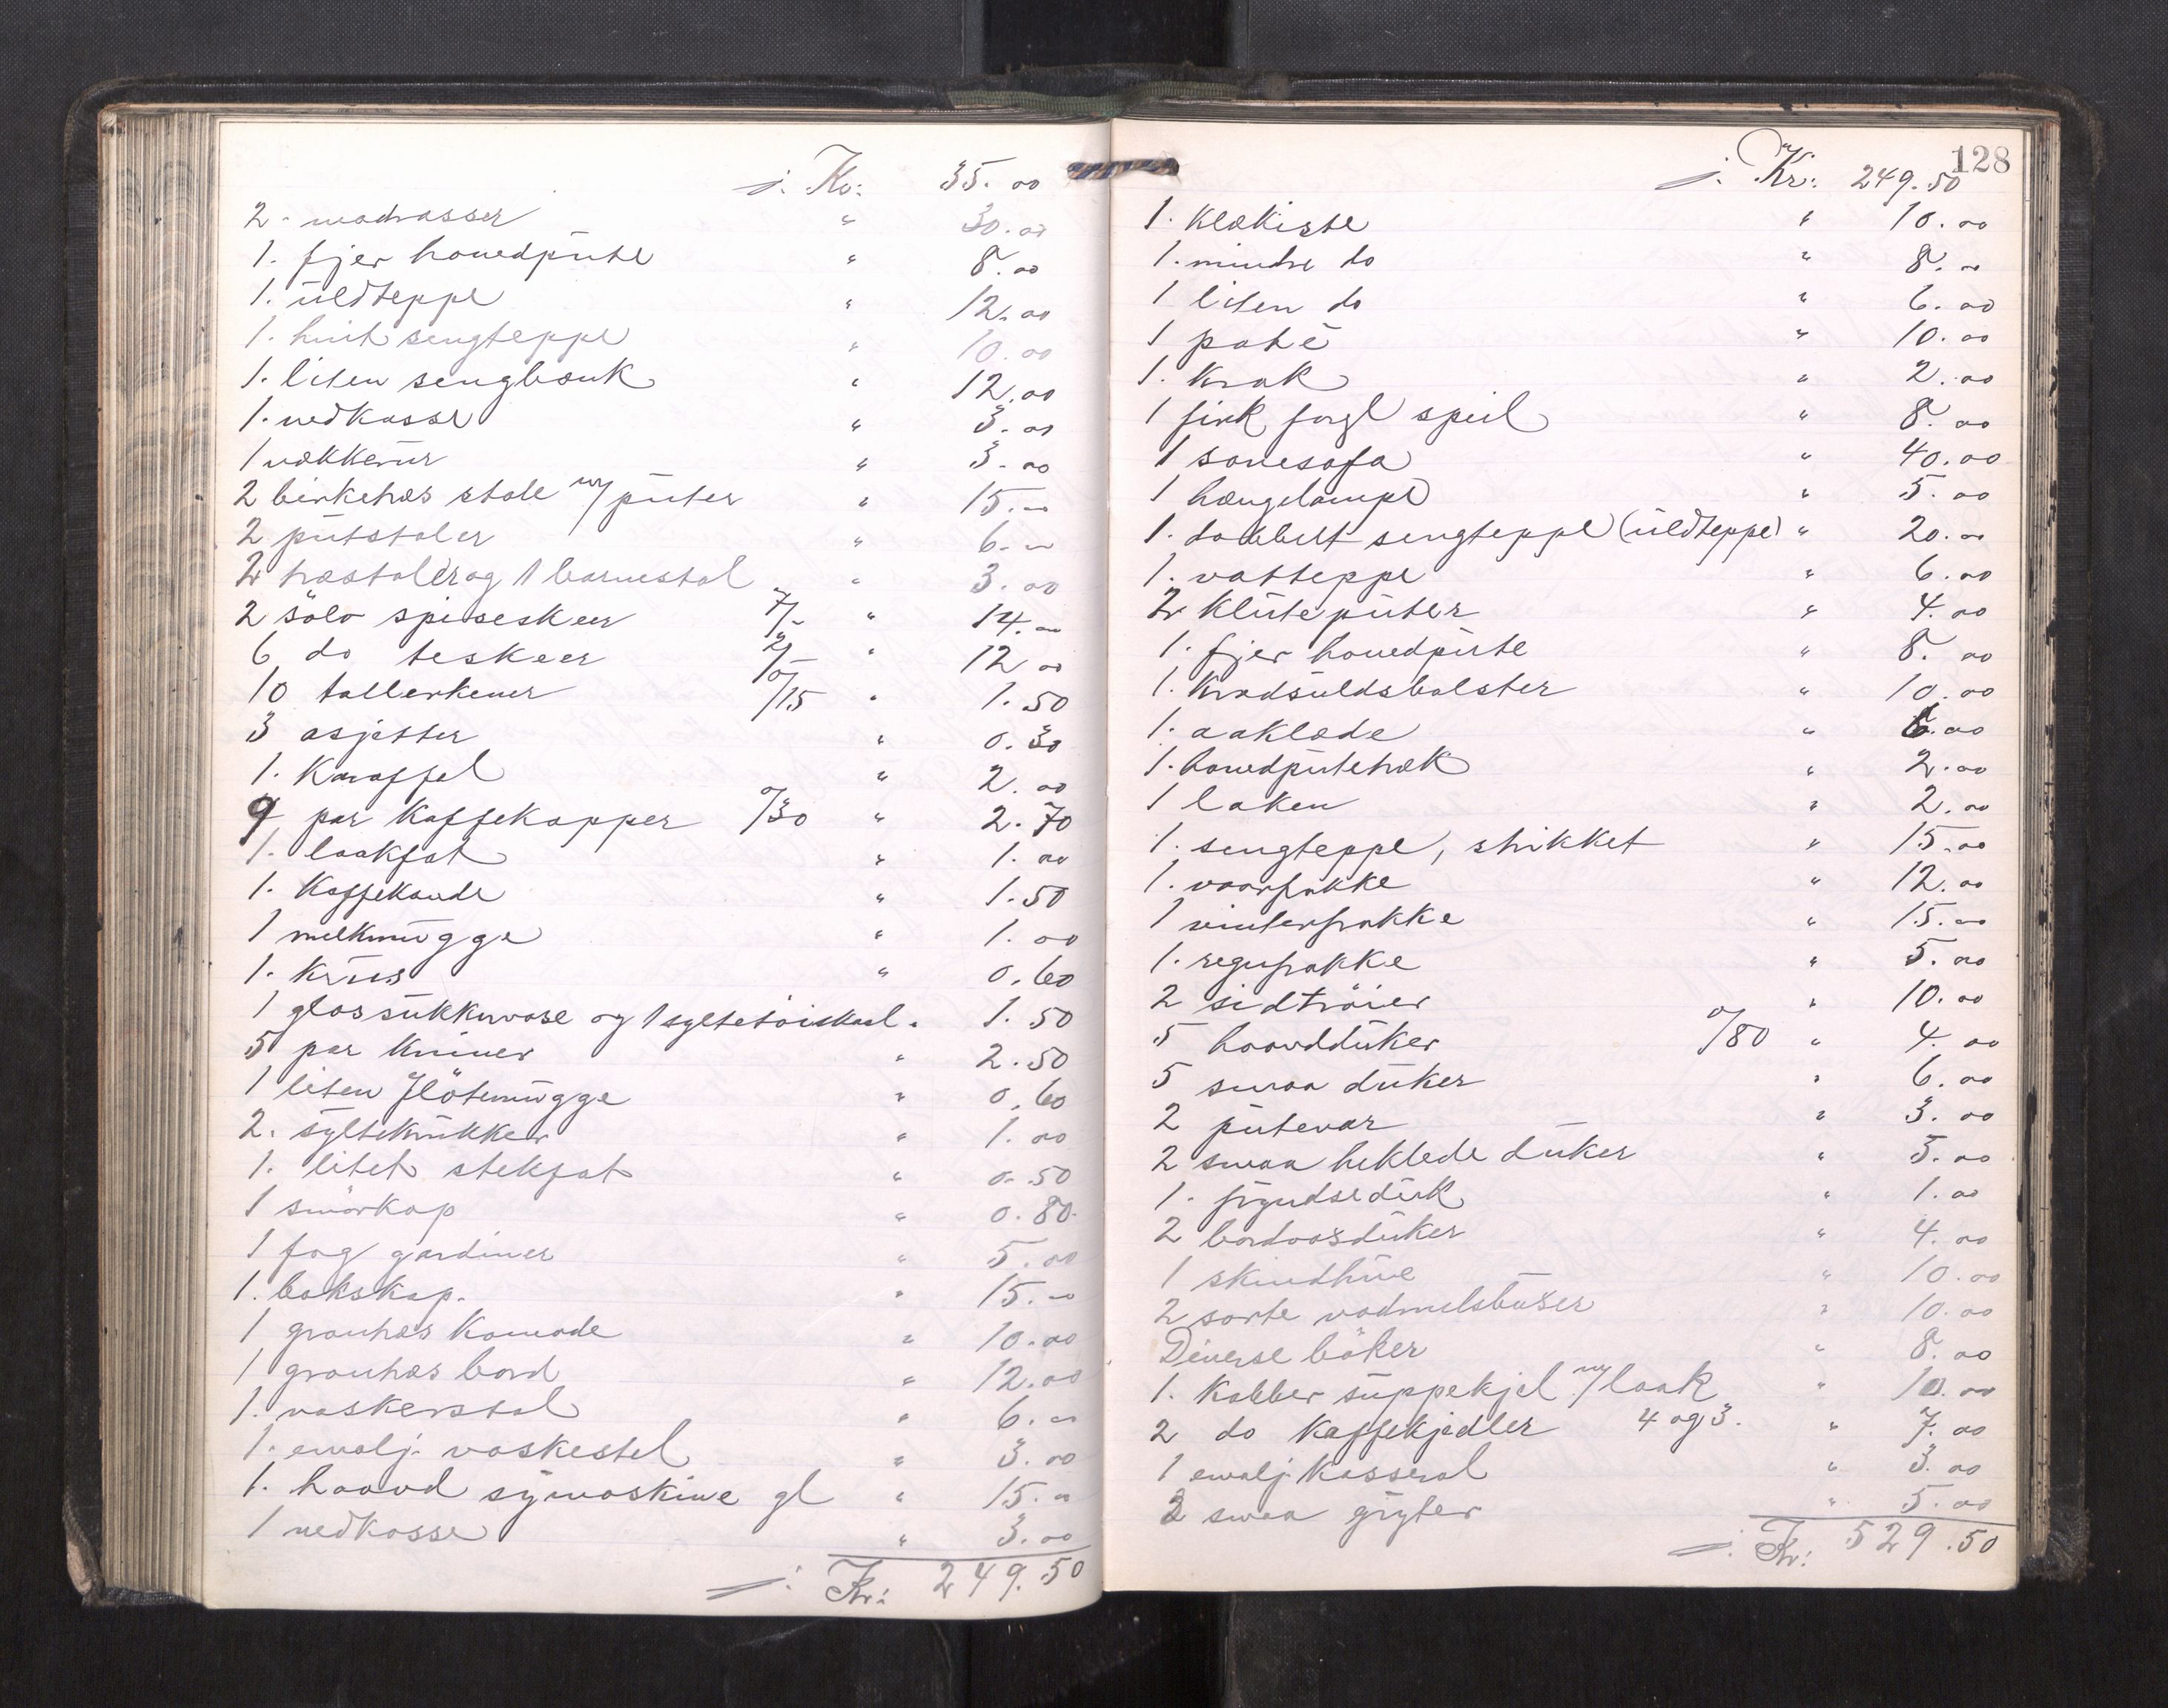 j. Kr: 35.00
2. madrasser " 30.00
1. fjer hovedpute " 8.00
1. uldteppe " 12.00
1. hvit sengteppe " 10.00
1. liten sengbænk " 12.00
1. vedkasse " 3.00
1 vækkerur " 3.00
2 birketræs stole m/ puter " 15.00
2 putstoler " 6.00
2 træstoler og 1 barnestol " 3.00
2 sølv spiseskeer 7/- " 14.00
6 do teskeer 2/- " 12.00
10 tallerkener 0/15 " 1.50
3 asjetter " 0.30
1. Karaffel " 2.00
9 par Kaffekopper 0/30 " 2.70
1. laakfat " 1.00
1. Kaffekande " 1.50
1 melkmugge " 1.00
1. Krus " 0.60
1 glas sukkervase og 1 syltetøiskaal " 1.50
5 par kniver " 2.50
1 liten fløtemugge " 0.60
2. syltekrukker " 1.00
1. litet stekfat " 0.50
1 smørkop " 0.80
1 fag gardiner " 5.00
1. bokskap. " 15.00
1 grantræs Komode " 10.00
1 grantræs bord " 12.00
1. vaskerstol " 6.00
1. emalj. vaskestel " 3.00
1. haand symaskine gl " 15.00
1 vedkasse " 3.00
j. Kr: 249.50
128
j. Kr: 249.50
1. Klækiste " 10.00
1. mindre do " 8.00
1 liten do " 6.00
1 " 10.00
1. Krak " 2.00
1 firk forgl speil " 8.00
1 sovesofa " 40.00
1 hængelampe " 5.00
1. dobbelt sengteppe (uldteppe) " 20.00
1. vatteppe " 6.00
2 Kluteputer " 4.00
1. fjer hovedpute " 8.00
1. Kradsuldsbolster " 10.00
1. aaklæde " 6.00
1. hovedputetræk " 2.00
1 laken " 2.00
1. sengteppe, strikket " 15.00
1. vaarfrakke " 12.00
1 vinterfrakke " 15.00
1. regnfrakke " 5.00
2 sidtrøier " 10.00
5 haandduker 0/80 " 4.00
5 smaa duker " 6.00
2 putevar " 3.00
2 smaa heklede duker " 3.00
1. fryndseduk " 1.00
2 bordvosduker " 4.00
1 skindhue " 10.00
2 sorte vadmelsbuser " 10.00
Diverse bøker " 8.00
1. Kobber suppekjel m/ laak " 10.00
2 do Kaffekjedler 4 og 3. " 7.00
1 emalj. Kasserol " 3.00
2 smaa gryter " 5.00
j. Kr: 529.50